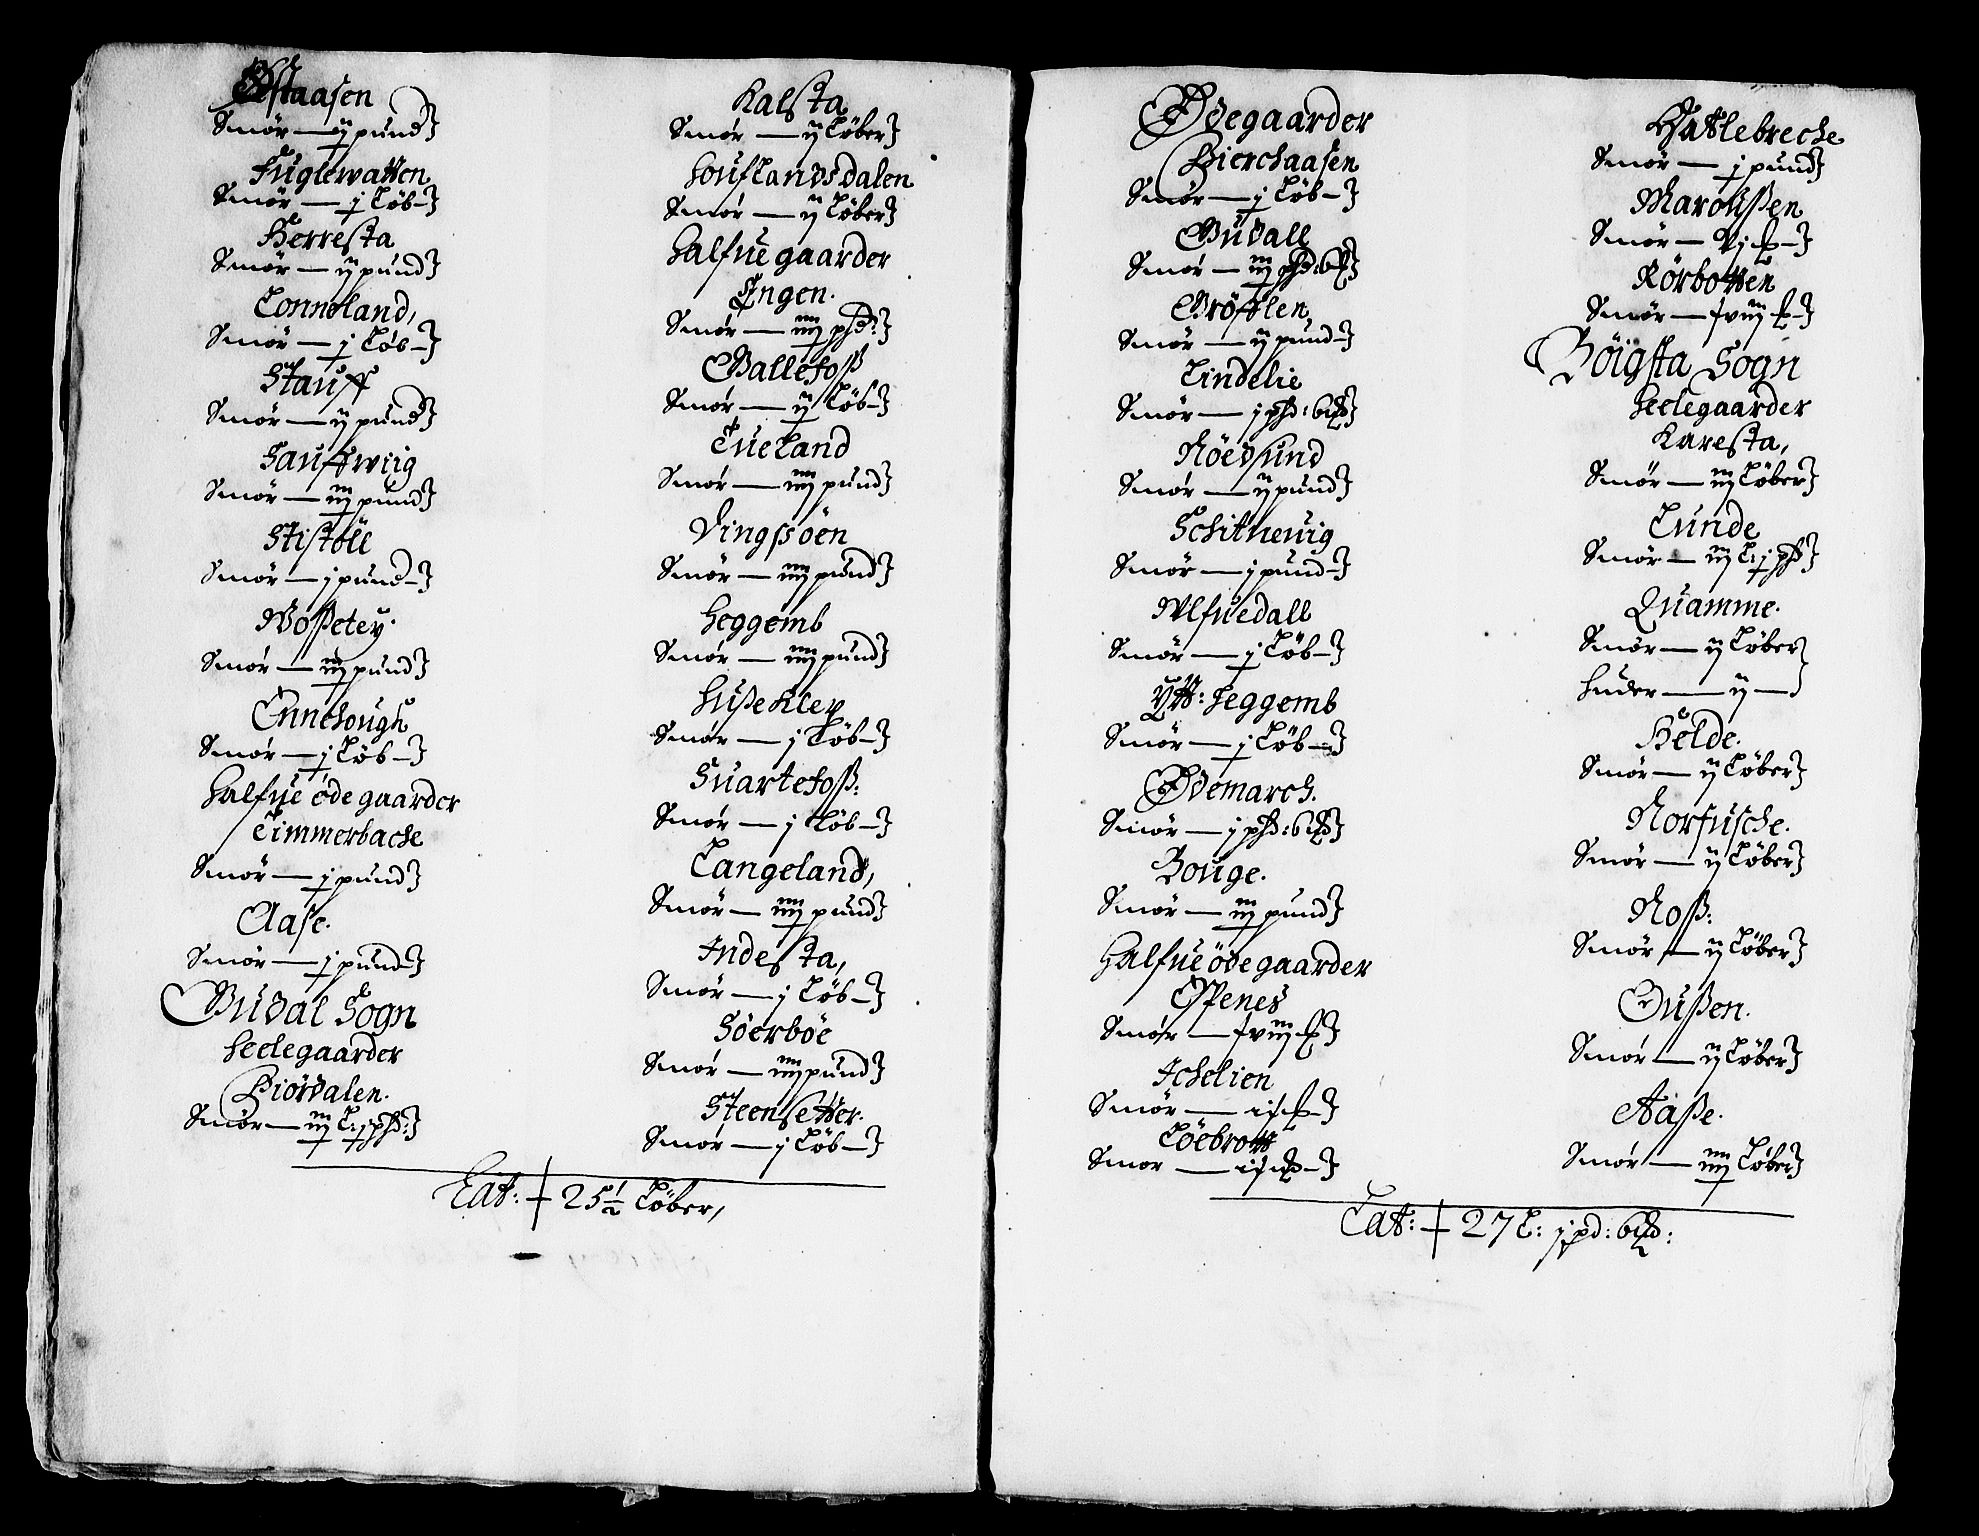 Østaasen
Smør — ij pund
Fuglewatten
Smør — j Løb
Herresta
Smør — ij pund
Tonneland,
Smør — j Løb
Stauff
Smør — ij pund
Sauffwiig
Smør — iij pund
Stistøle
Smør — j pund
Woßetey.
Smør — iij pund
Ennehough
Smør — j Løb
Halfue øde gaarder
Timmerbache
Smør — j pund
Aase.
Smør — j pund
Gudal Sogn
Heelegaarder
Biordalen.
Smør — iij L: j pḣd:
Kalsta
Smør — ij Løber
Houflandsdalen
Smør — ij Løber
Halfue gaarder
Engen.
Smør — iiij phd:
Gallefoß
Smør — ij Løb
Tueland
Smør — iiij pund
Vingsøen
Smør — iiij pund
Heggemb
Smør — iiij pund
Hußeklep
Smør — j Løb
Suartefoß:
Smør — j Løb
Langeland,
Smør — iiij pund
Indesta,
Smør — j Løb
Søerbøe
Smør — iiij pund
Steensetter.
Smør — j Løb
Lat: 25½ Løber,
Ødegaarder
Bierchaasen
Smør — j Løb
Gudall
Smør — iij phd: 6
Grøfflen
Smør — ij pund
Lindelie
Smør — j phd: 6
Nøedsund
Smør — ij pund
Schituevig
Smør — j pund
Vlfuedall
Smør — j Løb
Ytt: Heggemb
Smør — j Løb
Ødemarch.
Smør — j phd: 6
Bouge.
Smør — iij pund
Halfue øde gaarder
Openes
Smør
Ichelien
Smør
Løebrott
Smør
Hatlebreche
Smør — j pund
Mardußen
Smør — vj
Rørbotten
Smør
Bøigsta Sogn
Heelegaarder
Karesta,
Smør — iij Løber
Lunde
Smør — iij L: j phd
Quamme.
Smør — ij Løber
Huder — ij
Helde.
Smør — ij Løber
Norfusche.
Smør — ij Løber
Noß:
Smør — ij Løber
Oußen.
Smør — ij Løber
Aaße.
Smør — iiij Løber
Lat: 27 L: j pd: 6